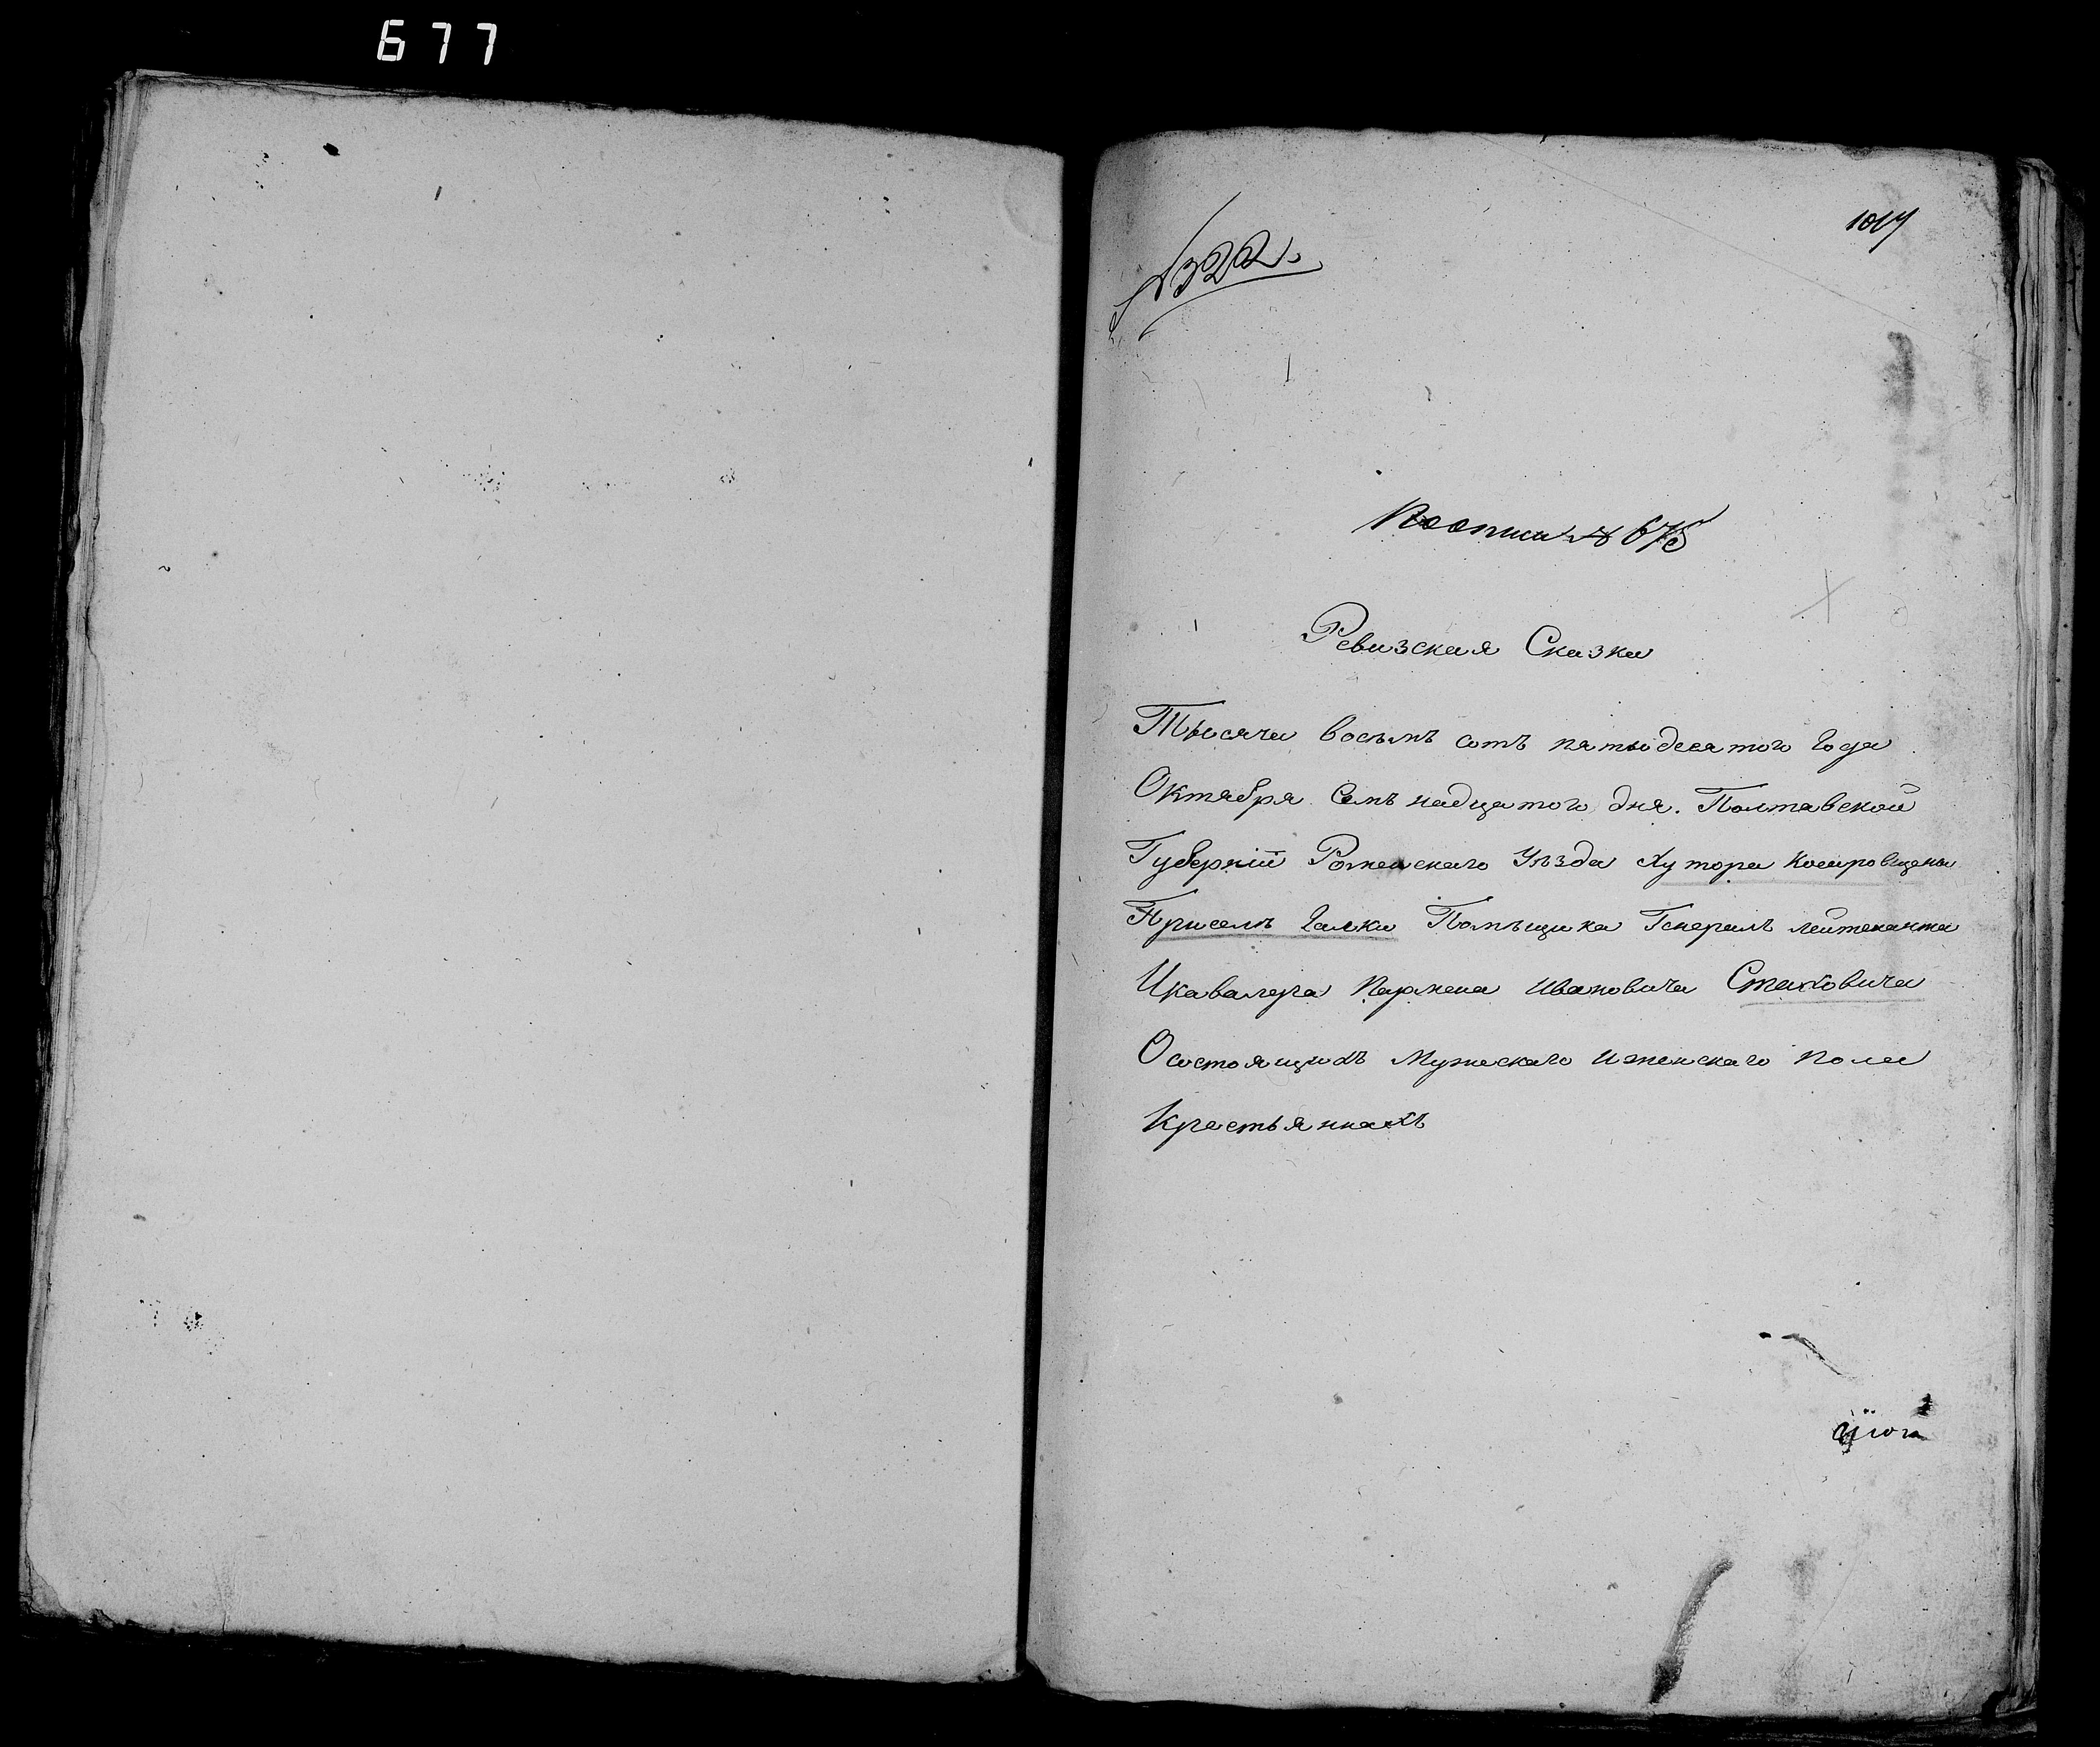 677
№322.
По описи № 675
Ревизская Сказка
Тысяча восемъ сотъ пятьдесятого года
Октября Семънадцатого дня. Полтавской
Губерніи Роменскаго Уѣзда Хутора
Приселѣ Галки Помѣщика Генералъ лейтенанта
Икавалера Пармена Ивановича Стаховича
Осостоящихъ Мужескаго иженскаго пола
Крестьянахъ